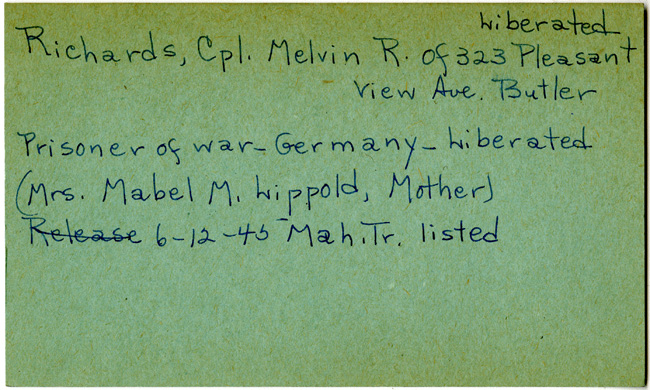 Liberated
Richards, Cpl. Melvin R. of 323 Pleasant
View Ave. Butler
Prisoner of war - Germany - Liberated
(Mrs. Mabel M. Lippold, Mother)
Release 6-12-45 Mah. Tr. listed